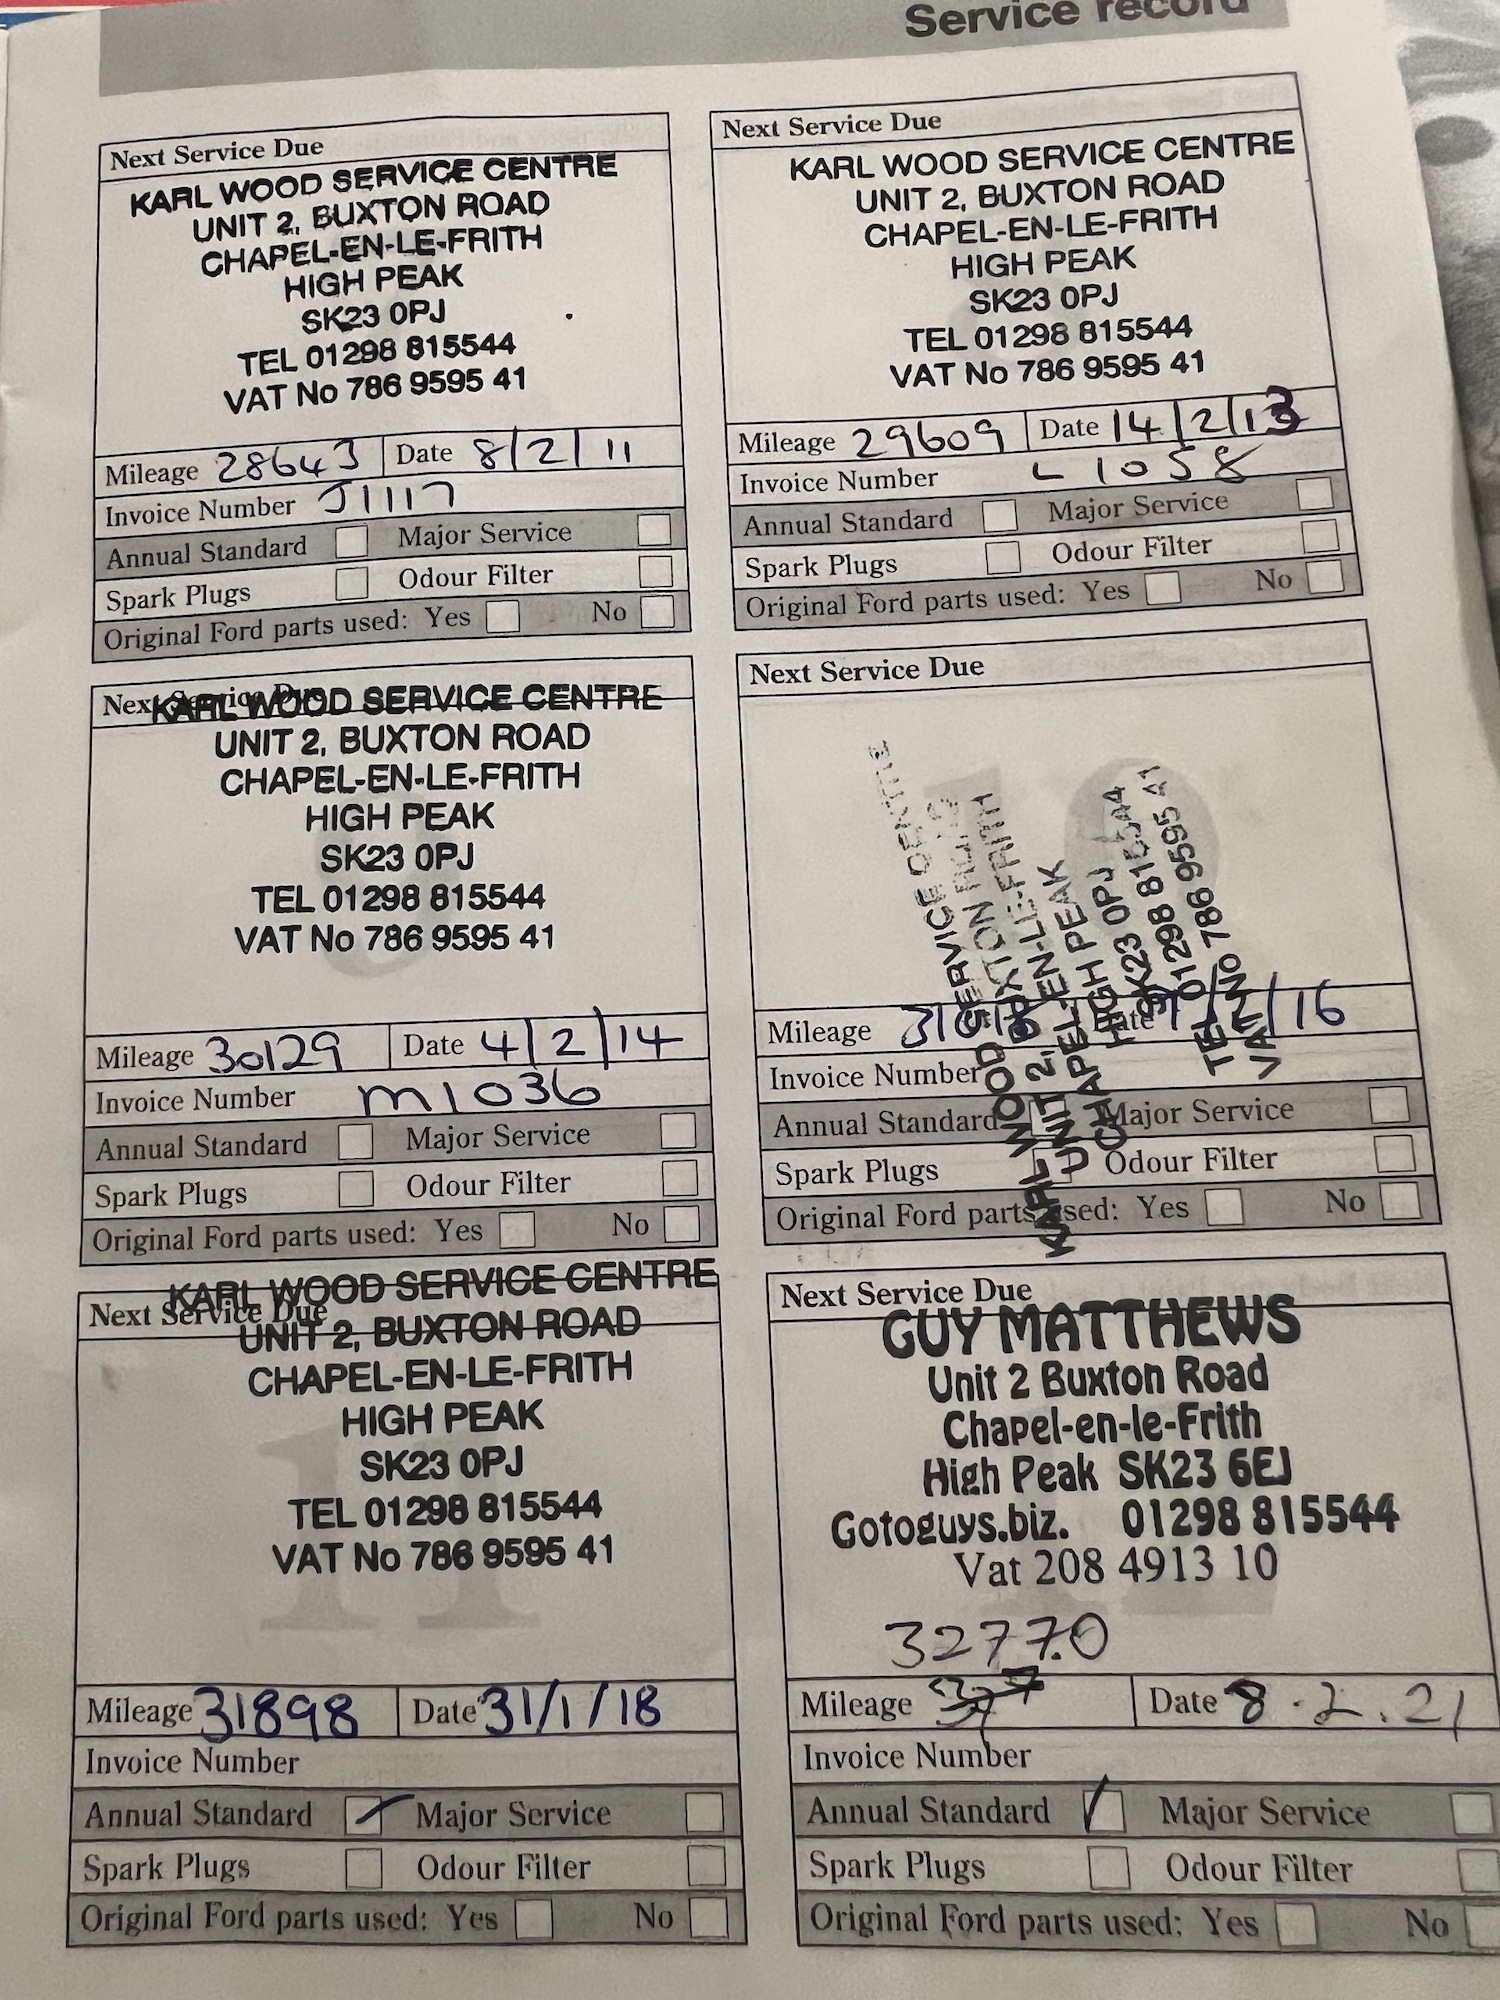 Service record
Next Service Due
KARL WOOD SERVICE CENTRE
UNIT 2, BUXTON ROAD
CHAPEL-EN-LE-FRITH
HIGH PEAK
SK23 0PJ
TEL 01298 815544
VAT No 786 9595 41
Mileage 28643 Date 8/2/11
Invoice Number J1117
Annual Standard Major Service
Spark Plugs Odour Filter
Original Ford parts used: Yes No
Next Service Due
KARL WOOD SERVICE CENTRE
UNIT 2, BUXTON ROAD
CHAPEL-EN-LE-FRITH
HIGH PEAK
SK23 0PJ
TEL 01298 815544
VAT No 786 9595 41
Mileage 29609 Date 14/2/13
Invoice Number L1058
Annual Standard Major Service
Spark Plugs Odour Filter
Original Ford parts used: Yes No
Next Service Due
KARL WOOD SERVICE CENTRE
UNIT 2, BUXTON ROAD
CHAPEL-EN-LE-FRITH
HIGH PEAK
SK23 0PJ
TEL 01298 815544
VAT No 786 9595 41
Mileage 30129 Date 4/2/14
Invoice Number M1036
Annual Standard Major Service
Spark Plugs Odour Filter
Original Ford parts used: Yes No
Next Service Due
KARL WOOD SERVICE CENTRE
UNIT 2, BUXTON ROAD
CHAPEL-EN-LE-FRITH
HIGH PEAK
SK23 0PJ
TEL 01298 815544
VAT No 786 9595 41
Mileage Date /16
Invoice Number
Annual Standard Major Service
Spark Plugs Odour Filter
Original Ford parts used: Yes No
Next Service Due
KARL WOOD SERVICE CENTRE
UNIT 2, BUXTON ROAD
CHAPEL-EN-LE-FRITH
HIGH PEAK
SK23 0PJ
TEL 01298 815544
VAT No 786 9595 41
11
Mileage 31898 Date 31/1/18
Invoice Number
Annual Standard Major Service
Spark Plugs Odour Filter
Original Ford parts used: Yes No
Next Service Due
GUY MATTHEWS
Unit 2 Buxton Road
Chapel-en-le-Frith
High Peak SK23 6EJ
Gotoguys.biz. 01298 815544
Vat 208 4913 10
32770
Mileage Date 8.2.21
Invoice Number
Annual Standard Major Service
Spark Plugs Odour Filter
Original Ford parts used: Yes No